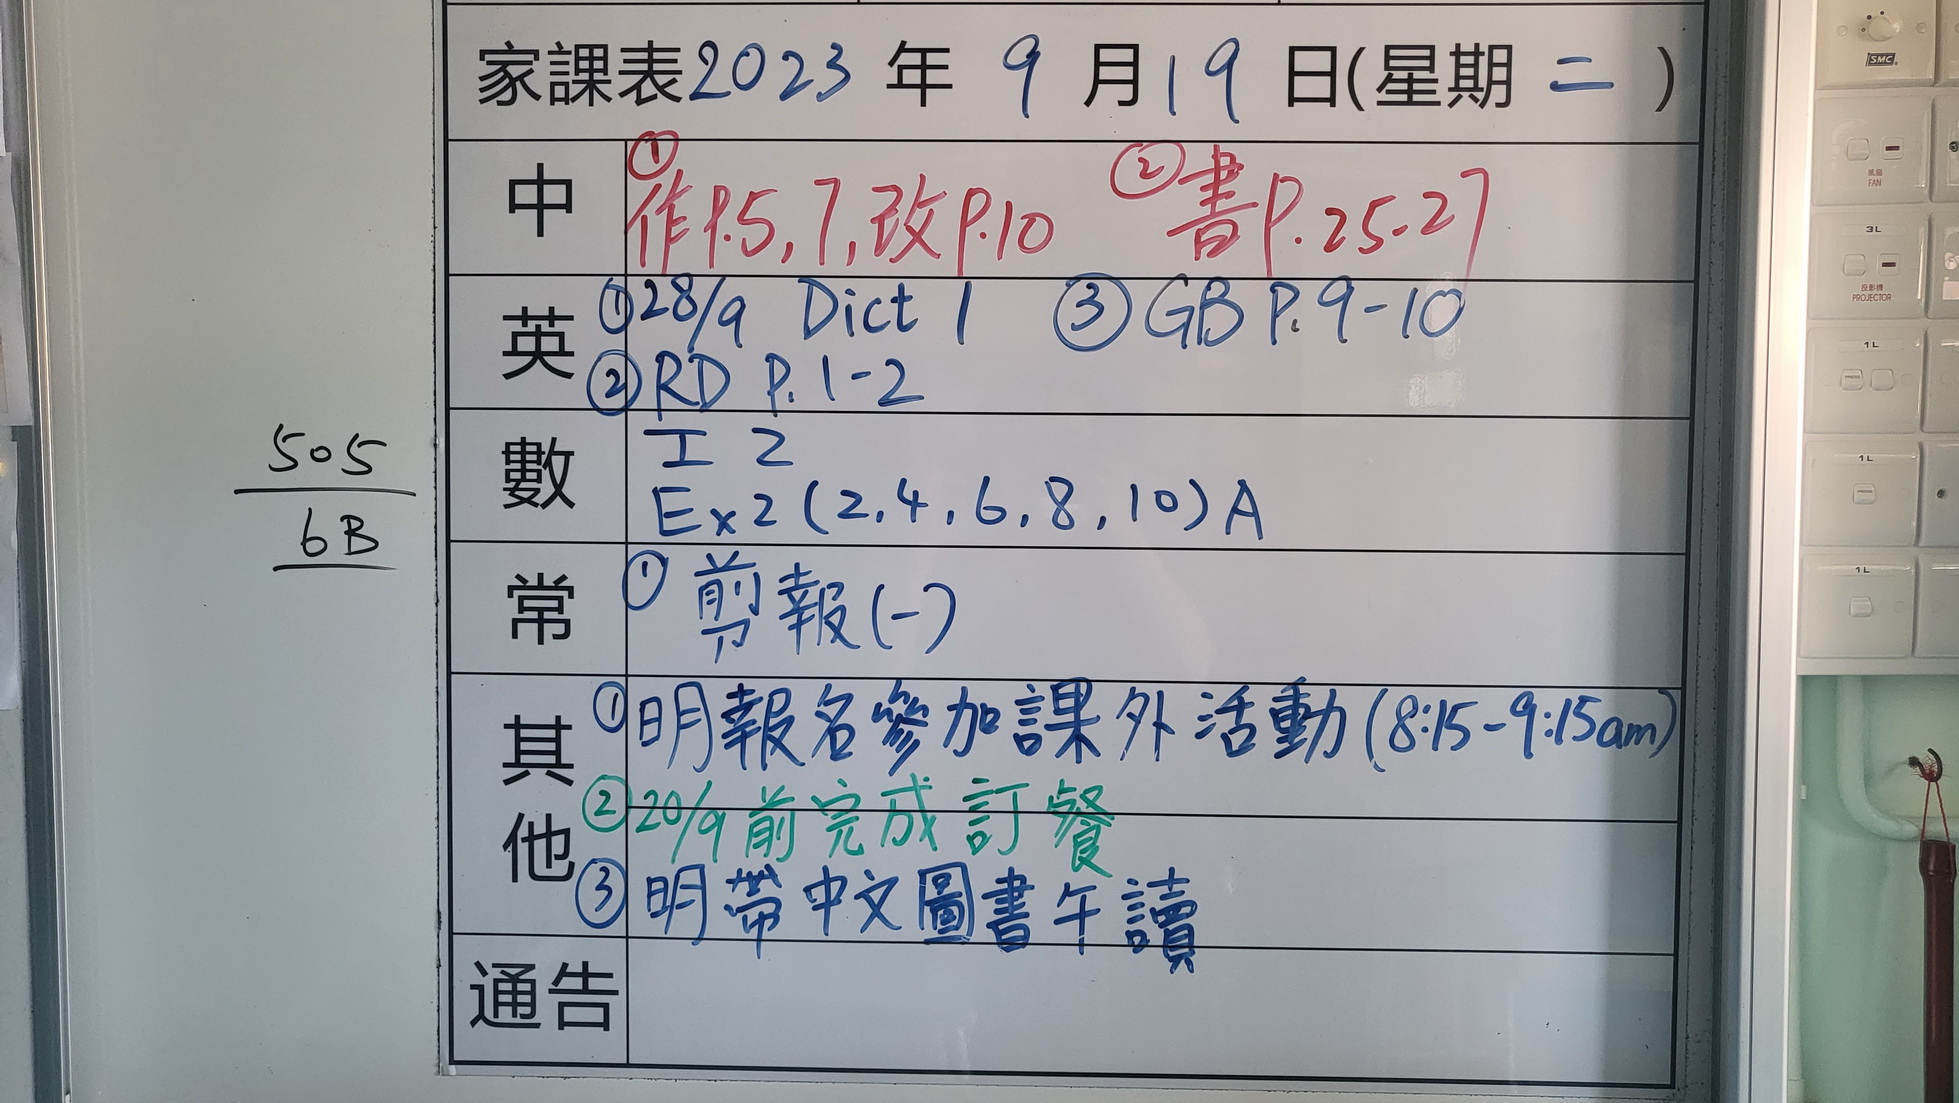 家課表2023年9月19日(星期二)
中 ①作P.5,7,改P.10 ②書P.25-27
英 ①28/9 Dict 1 ③GB P.9-10
②RD P.1-2
數 工 2
Ex2(2,4,6,8,10)A
常 ①剪報(一)
其他 ①明報名參加課外活動(8:15-9:15am)
②20/9前完成訂餐
③明帶中文圖書午讀
通告
505
6B
SMC
風扇
FAN
3L
投影機
PROJECTOR
1L
PRESS
1L
PRESS
1L